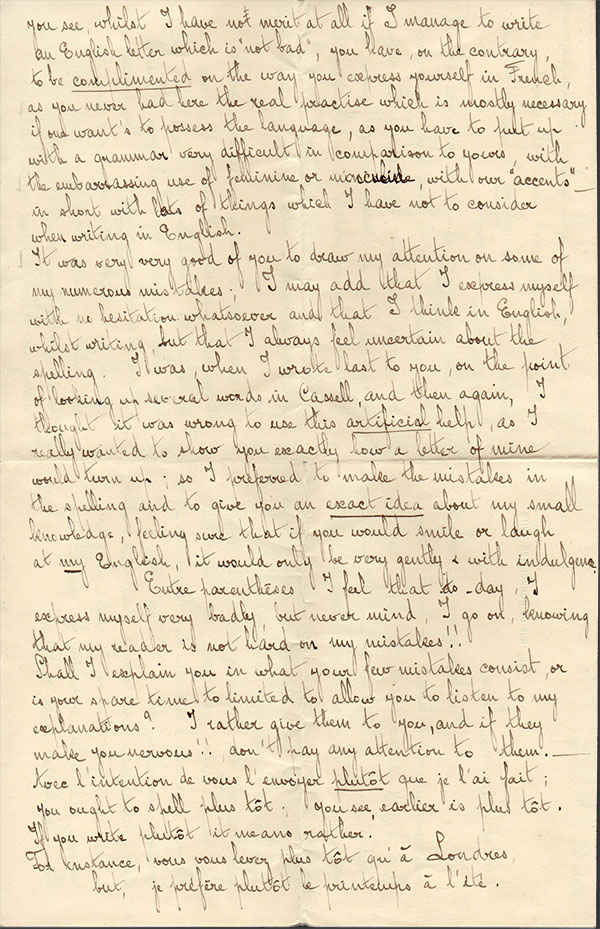 you see whilst I have not merit at all if I manage to write
an English letter which is "not bad", you have, on the contrary,
to be complimented on the way you express yourself in French,
as you never had here the real practise which is mostly necessary
if one want's to possess the language, as you have to put up
with a grammar very difficult in comparison to yours, with
the embarassing use of feminine or, with our "accents" —
in short with lots of things which I have not to consider
when writing in English.
It was very very good of you to draw my attention on some of
my numerous mistakes; I may add that I express myself
with no hesitation whatsoever and that I think in English,
whilst writing, but that I always feel uncertain about the
spelling. I was, when I wrote last to you, on the point
of looking up several words in Cassell, and then again, I
thought it was wrong to use this artificial help, as I
really wanted to show you exactly how a letter of mine
would turn up; so I preferred to make the mistakes in
the spelling and to give you an exact idea about my small
knowledge, feeling sure that if you would smile or laugh
at my English, it would only be very gently & with indulgence.
Entre parenthèses I feel that to-day, I
express myself very badly, but never mind, I go on, knowing
that my reader is not hard on my mistakes!!
Shall I explain you in what your few mistakes consist, or
is your spare time to limited to allow you to listen to my
explanations? I rather give them to you, and if they
make you nervous!!, don't pay any attention to them. —
Avec l'intention de vous l'envoyer plutôt que je l'ai fait;
you ought to spell plus tôt. you see, earlier is plus tôt.
If you write plutôt it means rather.
For instance, vous vous levez plus tôt qu'à Londres,
but, je préfère plutôt le printemps à l'été.